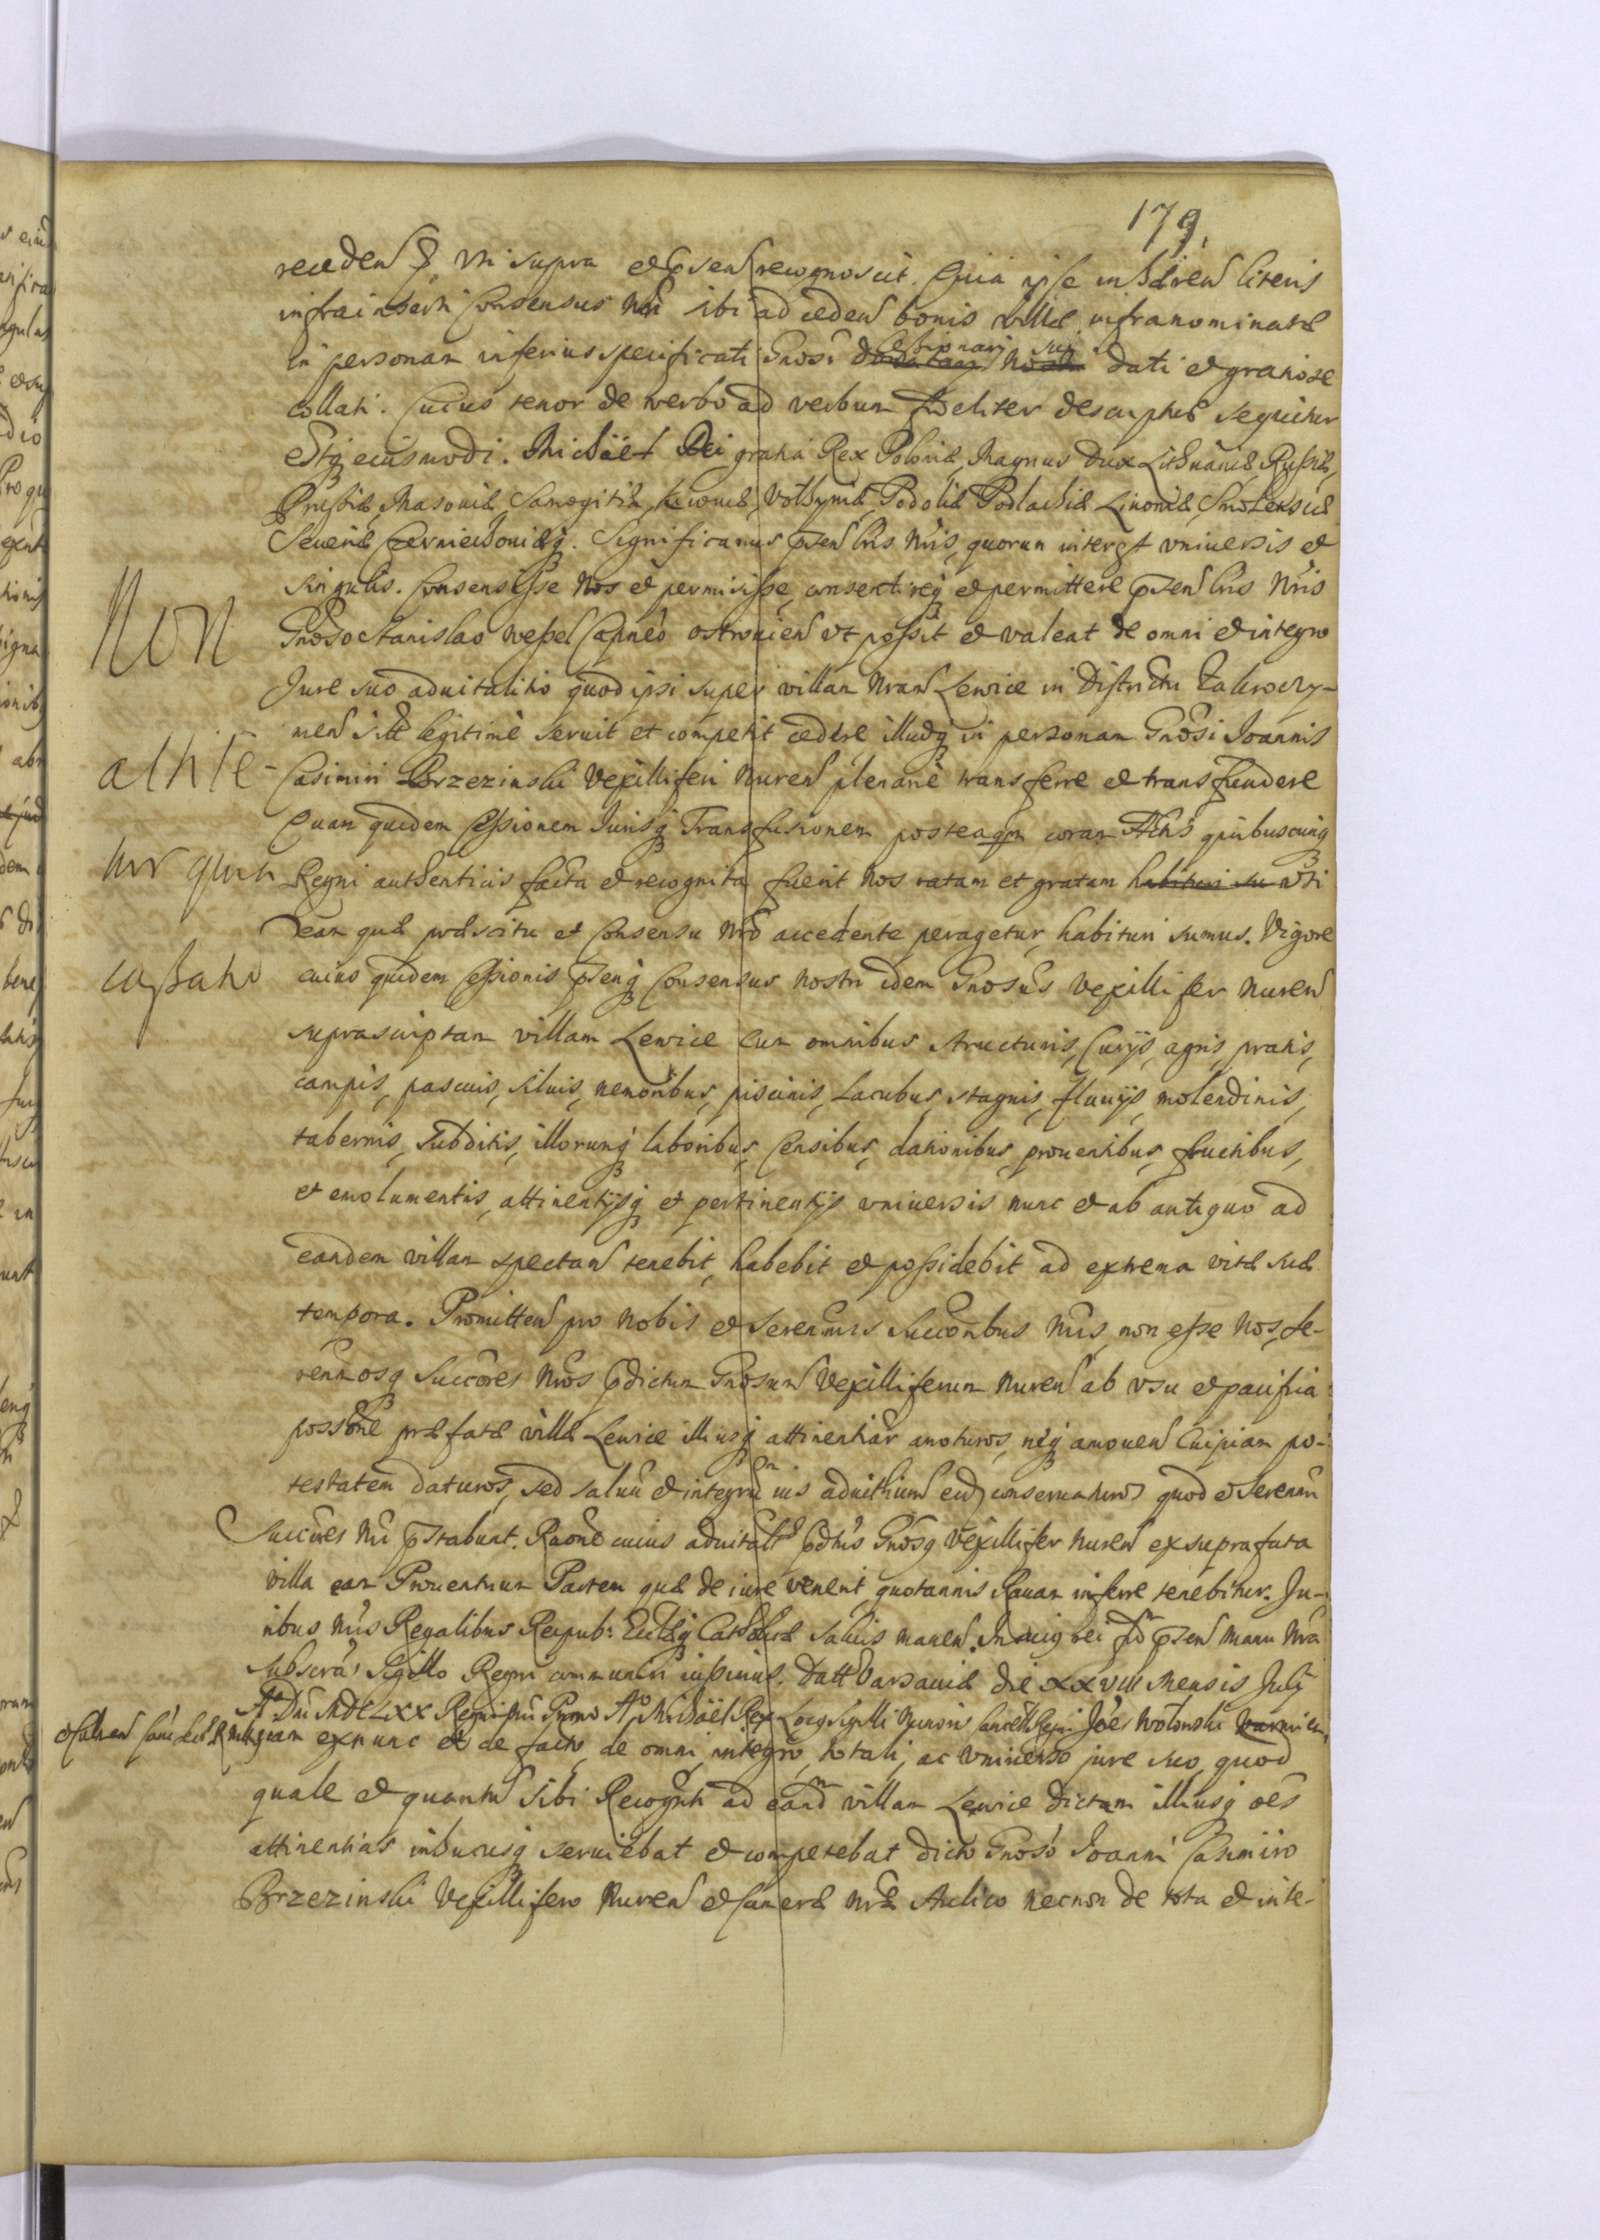 179.
receden uti supra et psen recognoscit. Quia ipse inhaeren literis
infrainserti Consensus Nri sibi ad ceden bonis villae infranominatae
in personam inferius specificati Gnosi Cessionarij sui dati et gratiose
collati. Cuius tenor de verbo ad verbum fideliter descriptus sequitur
Estq eiusmodi. Michaël Dei gratia Rex Poloniae, Magnus Dux Lithuaniae, Russiae,
Prussiae, Masoviae, Samogitiae, Kijoviae, Volhyniae, Podoliae Podlachiae Livoniae, Smolensciae
Severiae Czerniechoviaeq. Significamus psen lris Nris, quorum interest universis et
singulis. Consensisse Nos et permisisse, consentireq et permittere psen lris Nris
Gnoso Stanislao Wessel Capneo Ostrovien ut possit et valeat de omni et integro
Jure suo advitalitio quod ipsi super villam Nram Lewice in Districtu Zakroczy-
men sitt legitimè servit et competit cedere illudq in personam Gnosi Joannis
Casimiri Brzezinski Vexilliferi Nuren plenariè transferre et transfundere
Quam quidem Cessionem Jurisq Transfusionem posteaqm coram Actis quibuscunq
Regni authenticis facta et recognita fuerit Nos ratam et gratam habituri su
eam quae praescitu et Consensu Nro accedente peragetur, habituri sumus. Vigore
cuius quidem Cessionis psenq Consensus nostri idem Gnosus Vexillifer Nuren
suprascriptam villam Lewice cum omnibus structuris, Curijs, agris, pratis,
campis, pascuis, silvis, nemoribus, piscinis, Lacubus, stagnis, fluvijs, molendinis,
tabernis, subditis, illorumq laboribus, Censibus, dationibus, proventibus, fructibus,
et emolumentis, attinentijsq et pertinentijs universis nunc et ab antiquo ad
eandem villam spectan tenebit, habebit et possidebit ad extrema vitae suae
tempora. Promitten pro Nobis et Serenmis Succoribus Nris, non esse Nos, Se-
renmosq Succores Nros pdictum Gnosum Vexilliferum Nuren ab usu et pacifica
possone praefatae villae Lewice illiusq attinentiar amoturos, neq amoven Cuipiam po-
testatem daturos, sed salvu et integrum ius advitium eid conservaturos quod et Serenmi
Succores Nri pstabunt. Raone cuius advitalt pdtus Gnosq Vexillifer Nuren ex suprafata
villa eam Proventuum Partem quae de iure venerit, quotannis Ravam inferre tenebitur. Ju-
ribus Nris Regalibus Reipub: Eccliaeq Catholicae salvis manen. In cuiq rei fid psen manu Nra
subscra, Sigillo Regni communiri iussimus. Datt Varsaviae die XXVIII Mensis Julij
Ao Dni MDCLXX Regni Nri Primo Ao Michaël Rex Locq Sigilli Minoris Cancell Regni Joes Wolonski
quam exnunc et de facto, de omni, integro, totali, ac universo jure suo, quod
quale et quantu sibi Recognti ad eand villam Lewice dictam illiusq oes
attinentias inhucusq serviebat et competebat dicto Gnoso Joanni Casimiro
Brzezinski Vexillifero Nuren et Camerae Nrae Aulico necnon de tota et inte-
Non
cassato